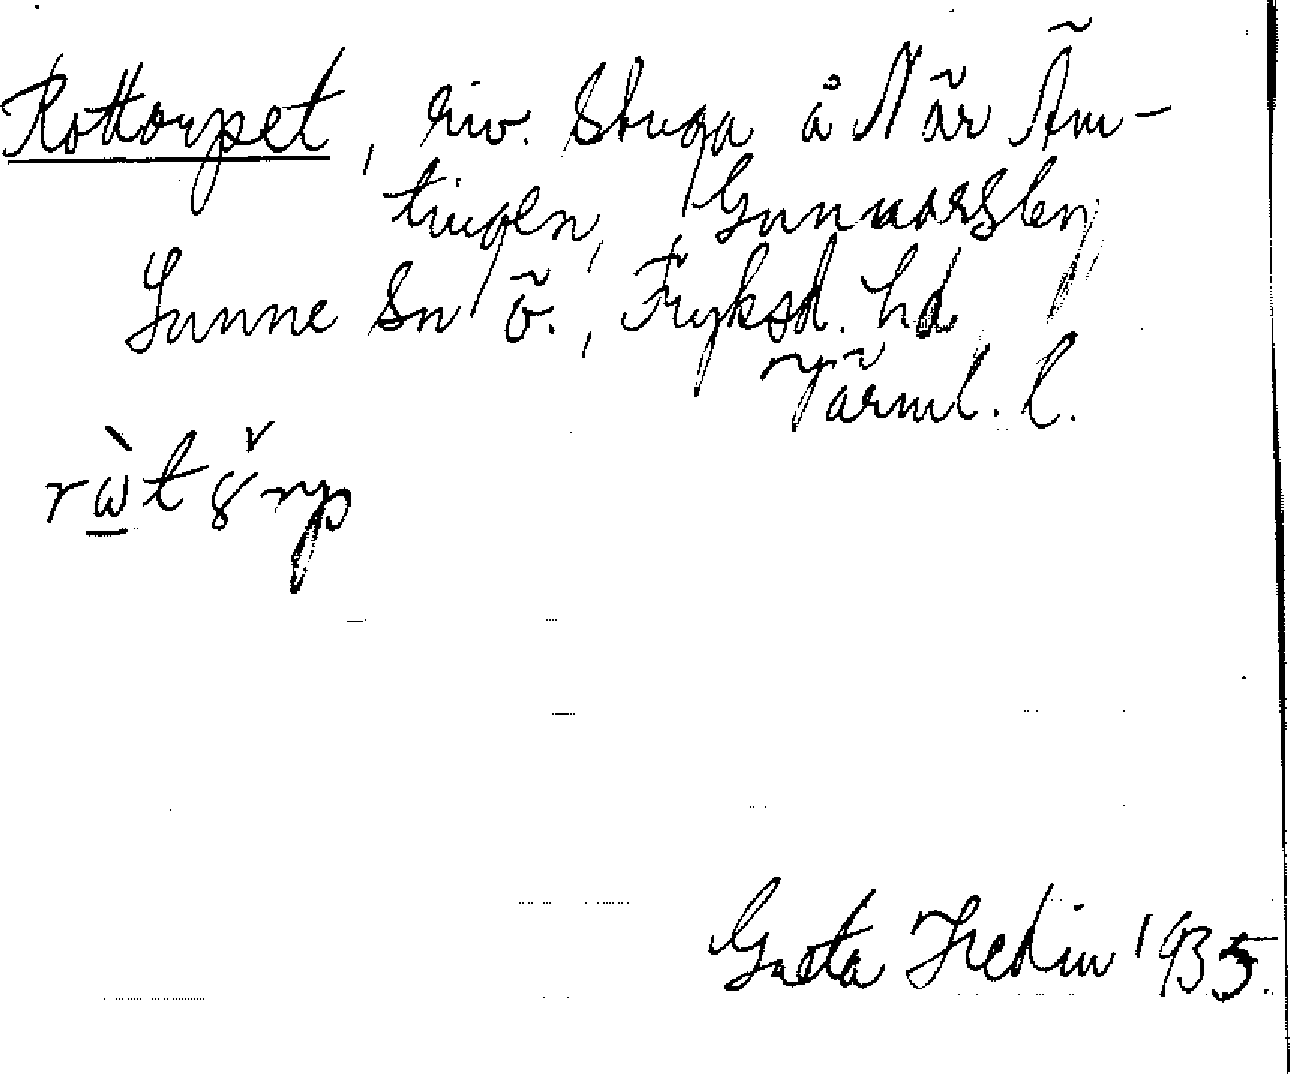 Rottorpet, riv. Stuga å När Äm-
tingen, Gunnarsby
Sunne Sn ö., Fryksd. hd
Värml. l.
Greta Hedin 1935.